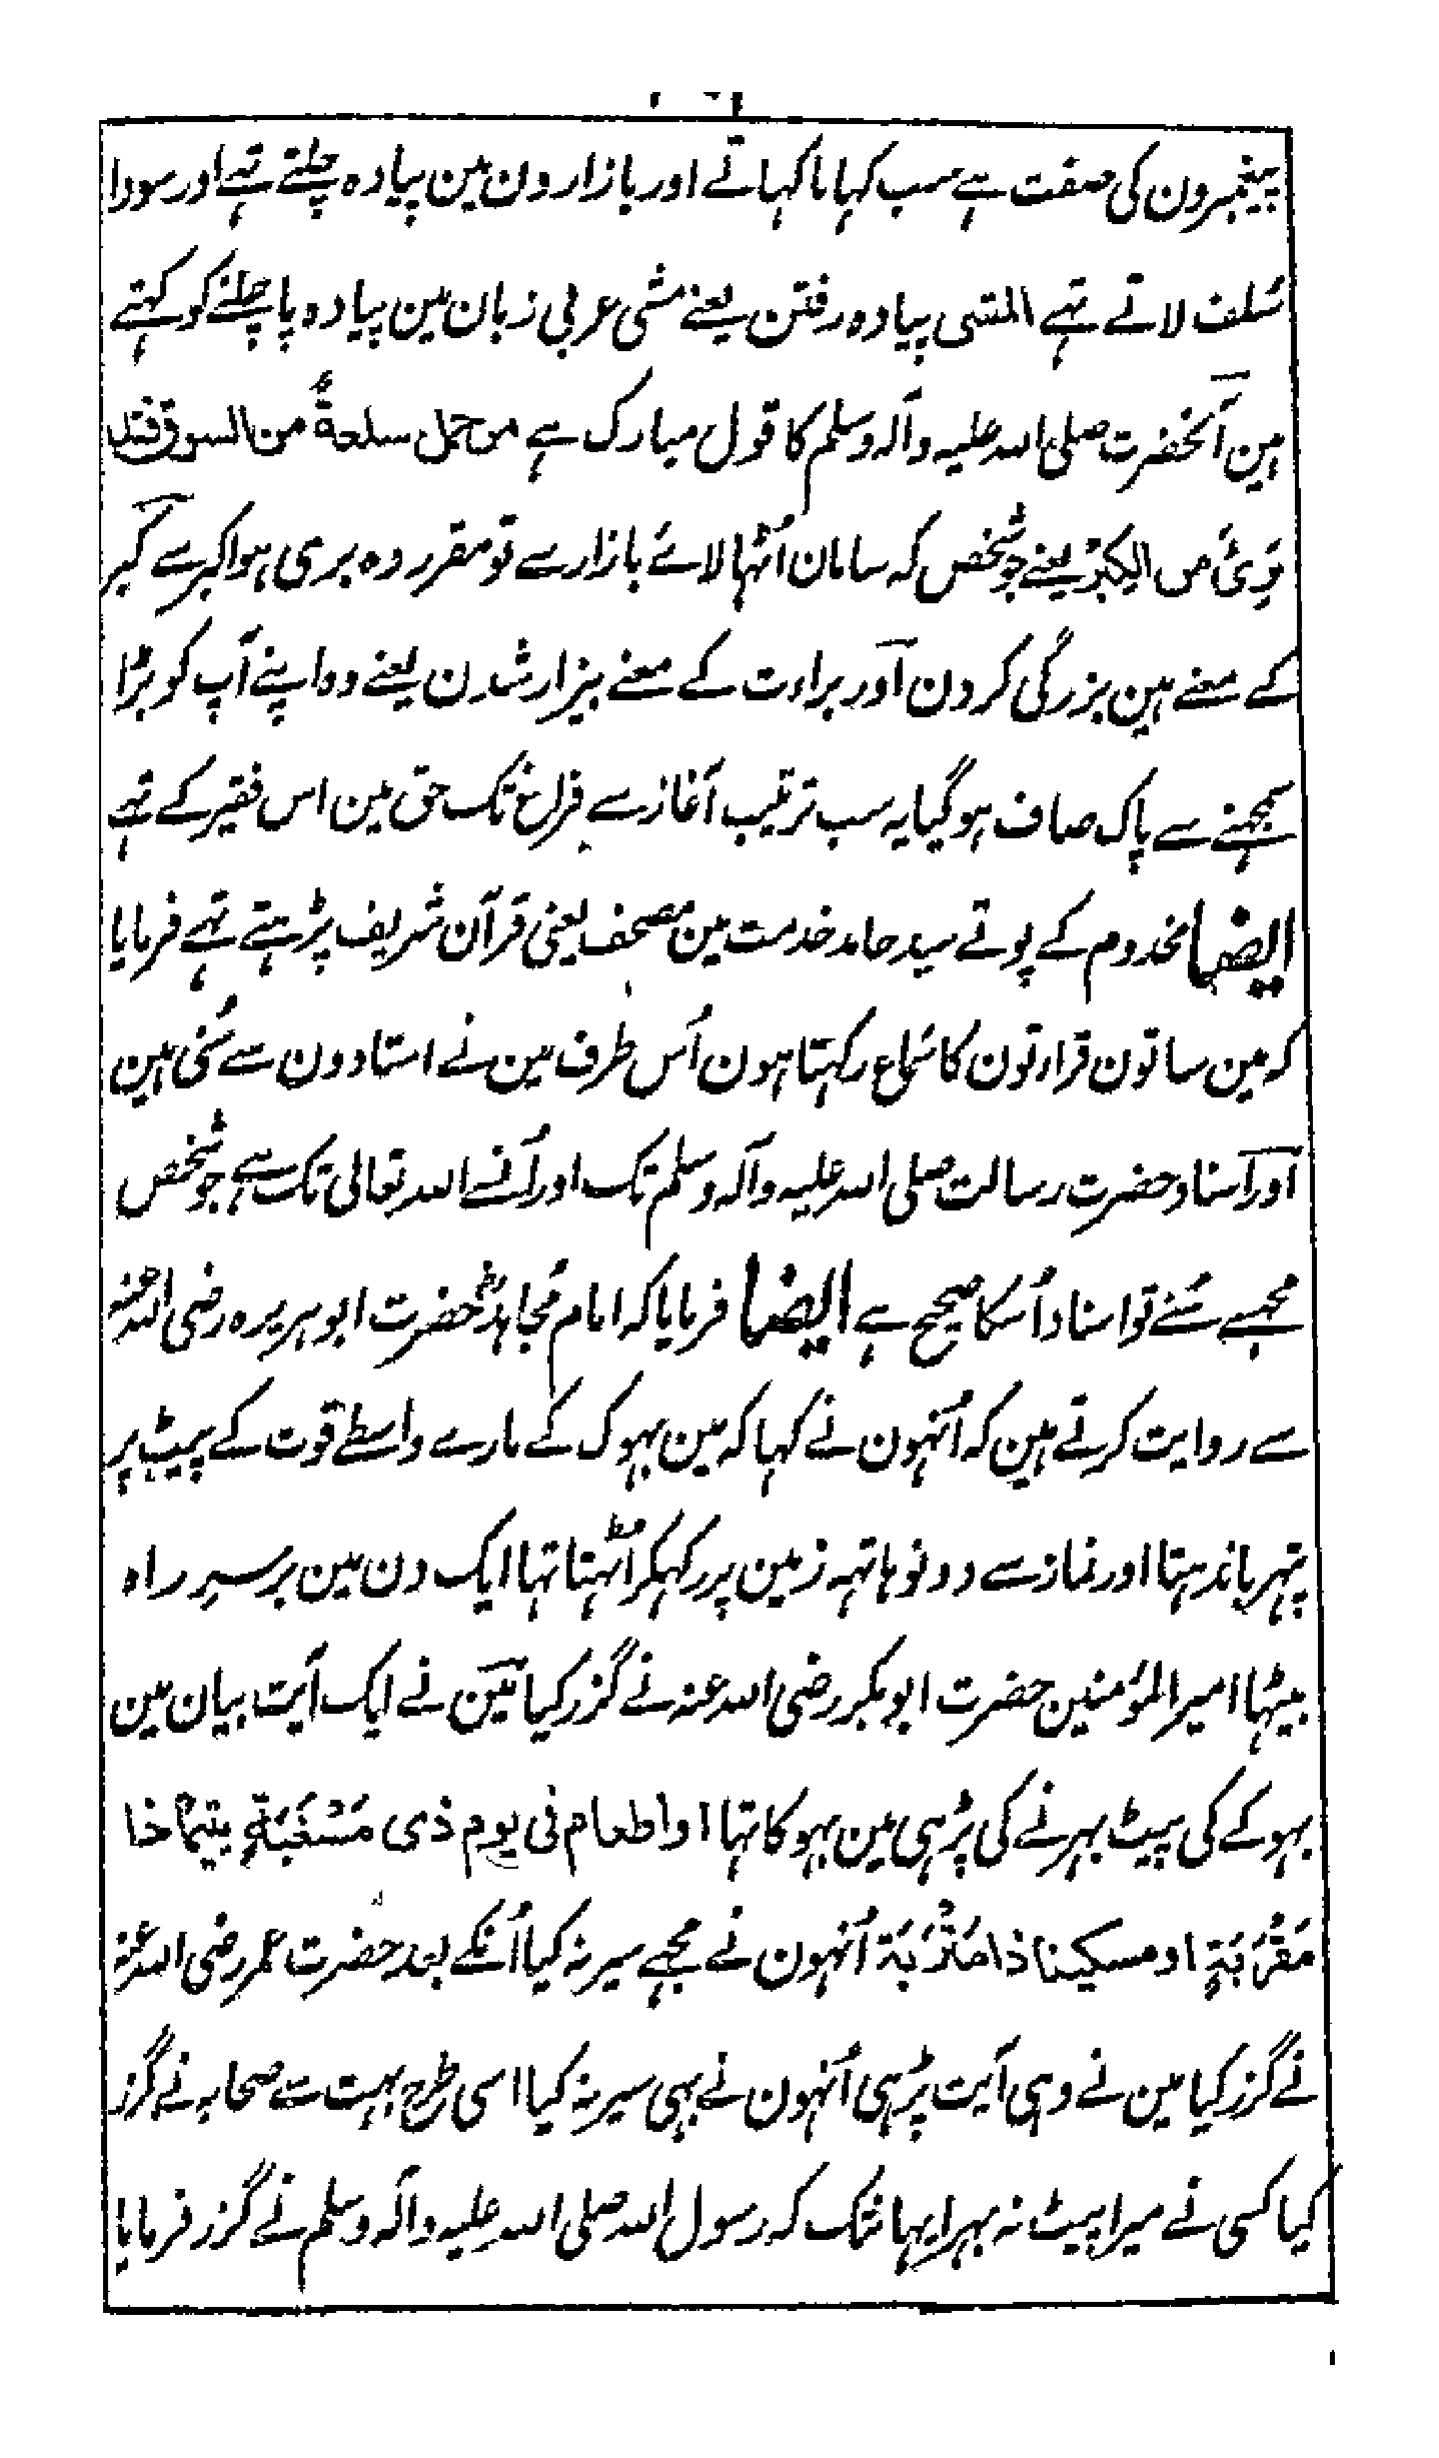 پیغمبرون کی صفت ہے سب کہانا کہاتے اور بازارون مین پیادہ چلتے تہے اور سودا
سُلف لاتے تہے المشی پیادہ رفتن یعنے مشی عربی زبان مین پیادہ پا چلنے کو کہتے
ہین آنحضرت صلی اللہ علیہ وآلہ وسلم کا قول مبارک ہے من حمل سلعةً من السوق فقد
بَرِئَ من الکبر یعنے جو شخص کہ سامان اُٹہا لائے بازار سے تو مقرر وہ بری ہوا کبر سے کبر
کے معنے ہین بزرگی کردن اور براءت کے معنے بیزار شدن یعنے وہ اپنے آپ کو بڑا
سمجہنے سے پاک صاف ہو گیا یہ سب ترتیب آغاز سے فراغ تک حق مین اس فقیر کے تہے
ایضا مخدوم کے پوتے سید حامد خدمت مین مصحف یعنی قرآن شریف پڑہتے تہے فرمایا
کہ مین ساتون قراءتون کا سَماع رکہتا ہون اُس طرف مین نے استادون سے سُنی ہین
اور اَسناد حضرت رسالت صلی اللہ علیہ وآلہ وسلم تک اور اُنسے اللہ تعالی تک ہے جو شخص
مجہسے سُنے تو اسناد اُسکا صحیح ہے ایضا فرمایا کہ امام مُجاہد حضرت ابو ہریرہ رضی اللہ عنہ
سے روایت کرتے ہین کہ اُنہون نے کہا کہ مین بہوک کے مارے واسطے قوت کے پیٹ پر
پتہر باندہتا اور نماز سے دونو ہاتہہ زمین پر رکہکر اُٹہتا تہا ایک دن مین بر سرِ راہ
بیٹہا امیر المؤمنین حضرت ابو بکر رضی اللہ عنہ نے گزر کیا مین نے ایک آیت بیان مین
بہوکے کی پیٹ بہرنے کی پڑہی مین بہوکا تہا او اطعام فی یوم ذی مَسْغَبَةٍ یتیمًا ذا
مَقْرَبَةٍ او مسکینا ذا مَتْرَبَة اُنہون نے مجہے سیر نہ کیا اُنکے بعد حضرت عمر رضی اللہ عنہ
نے گزر کیا مین نے وہی آیت پڑہی اُنہون نے بہی سیر نہ کیا اسی طرح بہت سے صحابہ نے گزر
کیا کسی نے میرا پیٹ نہ بہرا یہانتک کہ رسول اللہ صلی اللہ علیہ وآلہ وسلم نے گزر فرمایا